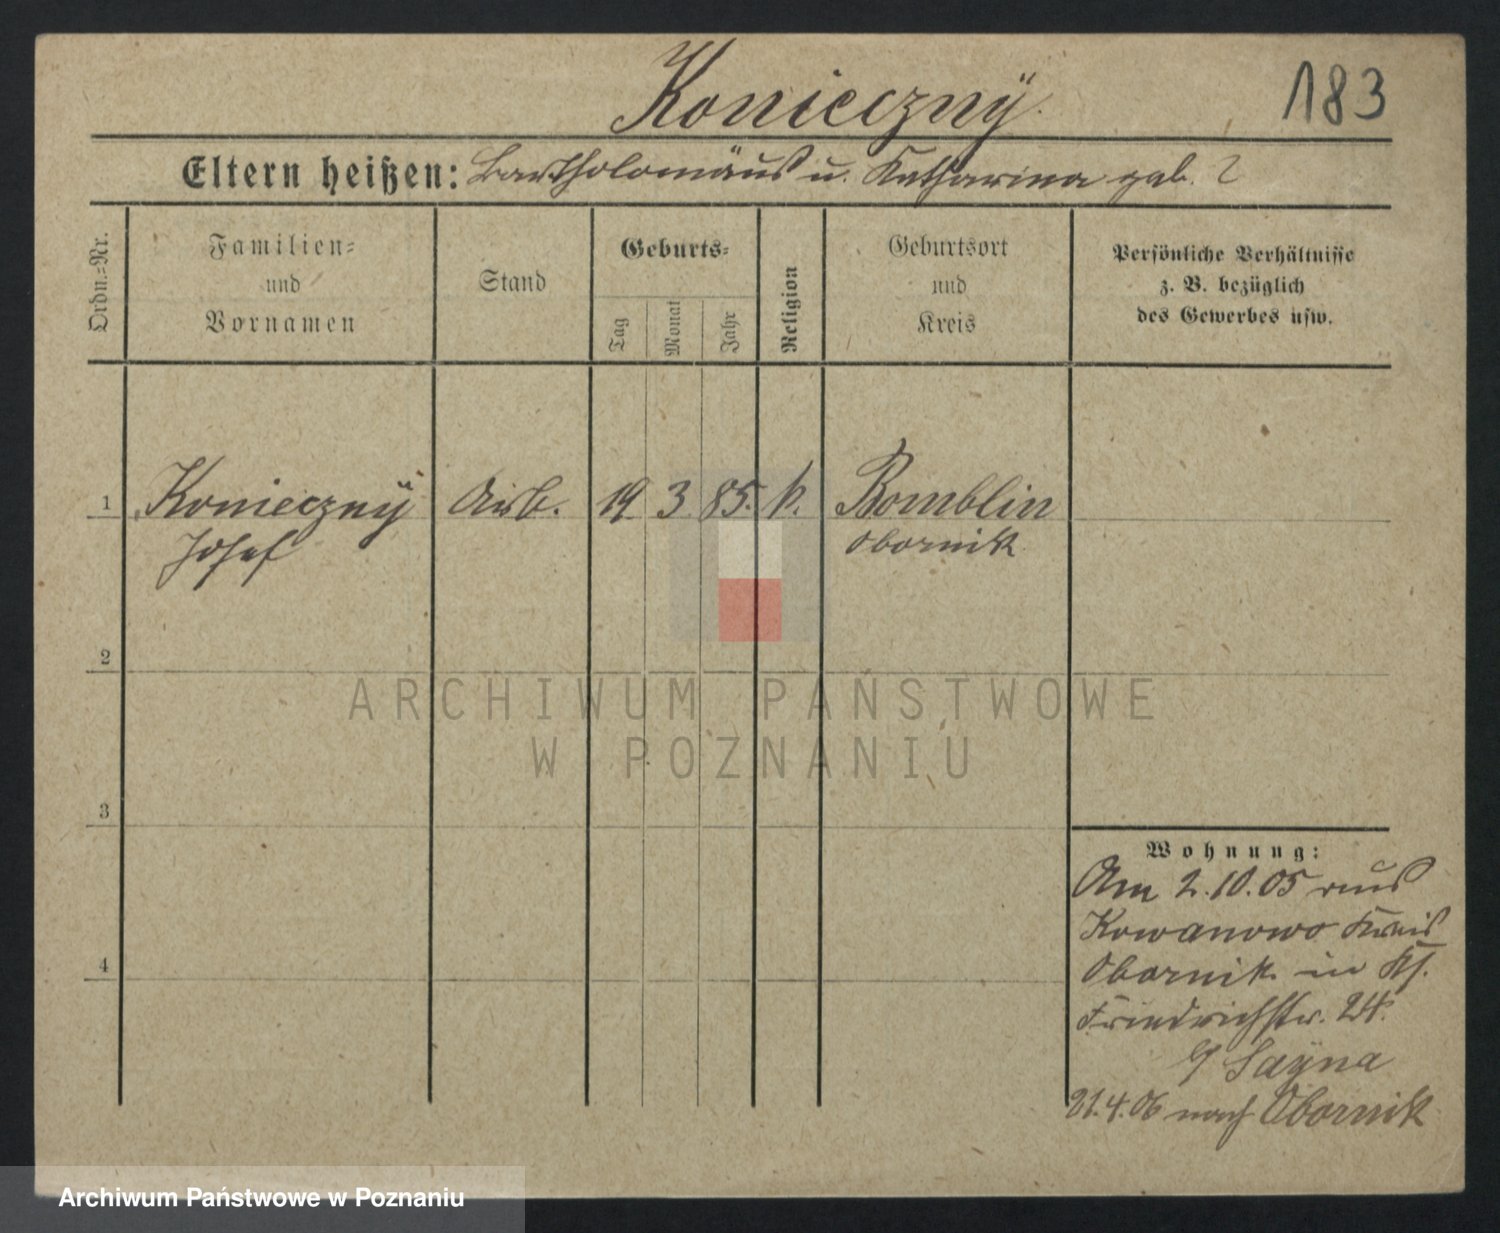 Konieczny
183
Eltern heißen: Bartholomäus u. Katharina geb. ?
Ordn.-Nr.
Familien-
und
Vornamen
Stand
Geburts-
Tag
Monat
Jahr
Religion
Geburtsort
und
Kreis
Persönliche Verhältnisse
z. B. bezüglich
des Gewerbes usw.
1 Konieczny Arb. 19 3 85. k. Bomblin
Josef Obornik
2
ARCHIWUM PAŃSTWOWE
W POZNANIU
3
4
Wohnung:
Am 2.10.05 aus
Kowanowo Kreis
Obornik in
Friedrichstr. 24.
b/ Sayna
21.4.06 nach Obornik
Archiwum Państwowe w Poznaniu